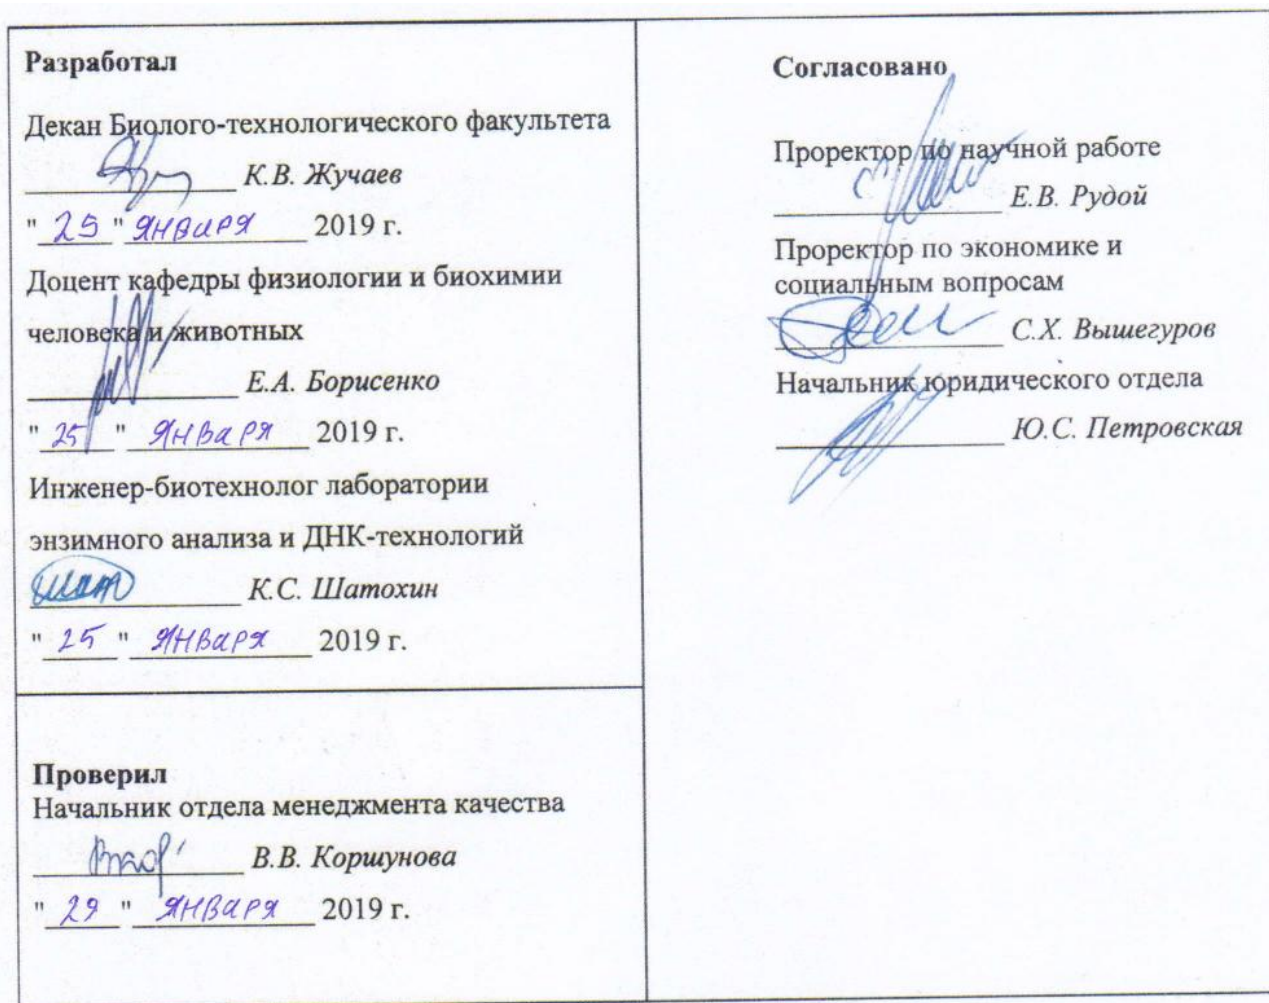 Разработал
Декан Биолого-технологического факультета
К.В. Жучаев
"25" января 2019 г.
Доцент кафедры физиологии и биохимии
человека и животных
Е.А. Борисенко
"25" января 2019 г.
Инженер-биотехнолог лаборатории
энзимного анализа и ДНК-технологий
К.С. Шатохин
"25" января 2019 г.
Проверил
Начальник отдела менеджмента качества
В.В. Коршунова
"29" января 2019 г.
Согласовано
Проректор по научной работе
Е.В. Рудой
Проректор по экономике и
социальным вопросам
С.Х. Вышегуров
Начальник юридического отдела
Ю.С. Петровская